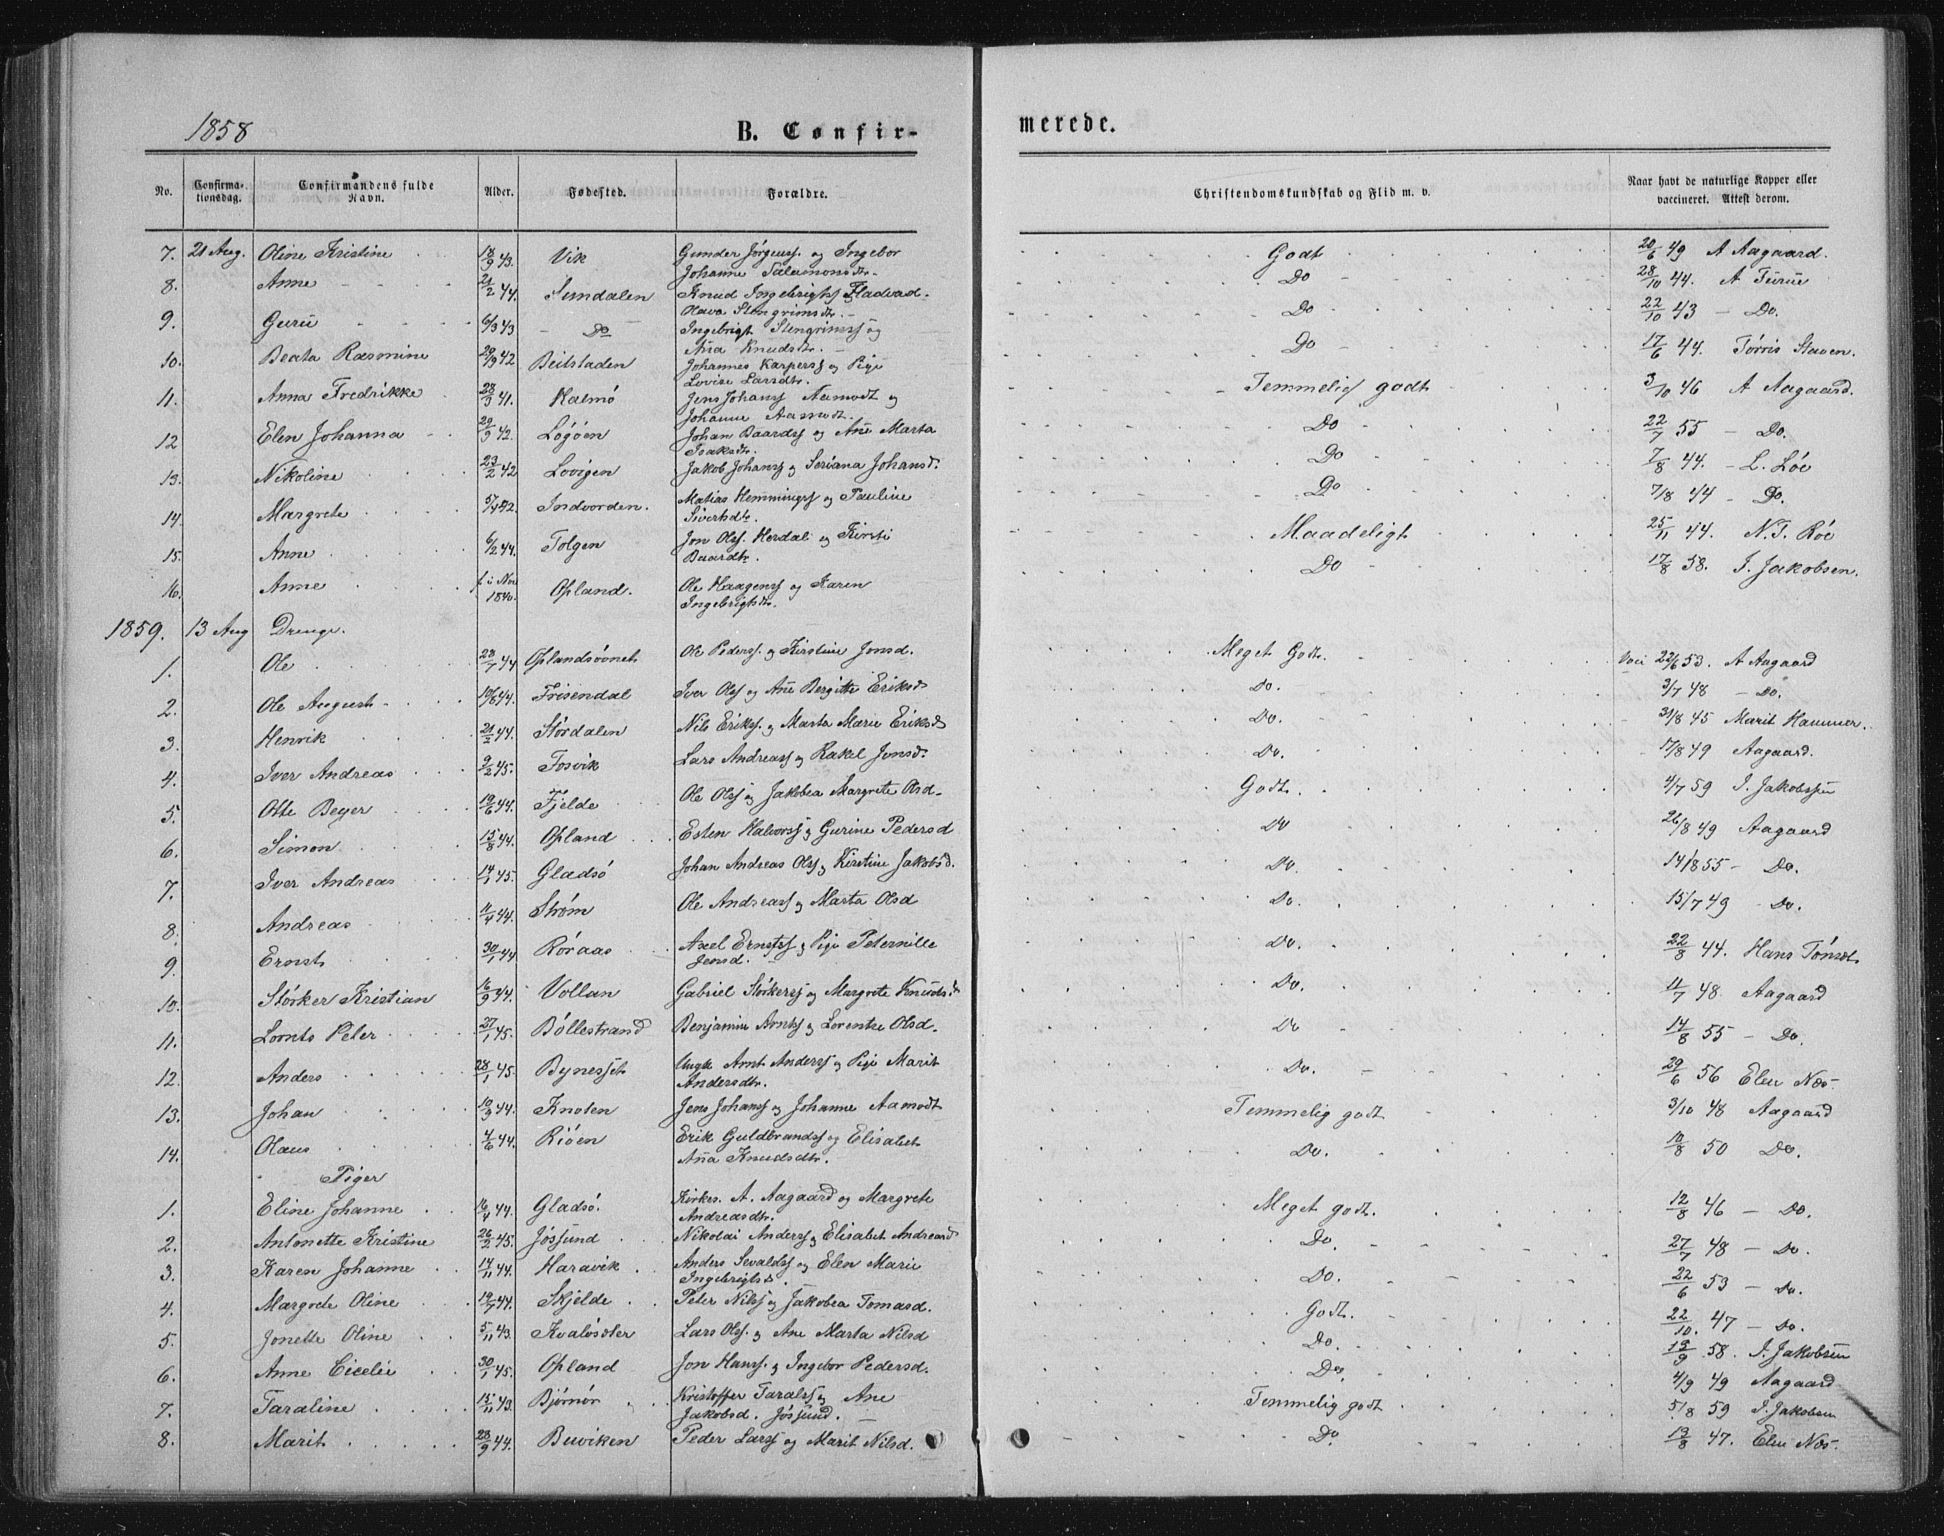 1858 B. Confir- merede.
No. Confirma-tionsdag. Confirmandens fulde Navn. Alder. Fødested. Forældre. Christendomskundskab og Flid m. v. Naar havt de naturlige Kopper eller vaccineret. Attest derom.
7. 21 Aug. Oline Kristine 18/9 43. Vik Gunder Jørgenss. og Ingebor Godt 20/6 49 A Aagaard.
Johanne Salamonsdtr.
8. Anne 21/2 44. Sundalen Knud Ingebrigtss Fladvad. Do 28/10 44. A Furue
Olava Stengrimsdtr.
9. Guru 6/3 43 Do Ingebrigt Stengrimss og Do 22/10 43 Do.
Aña Knudsdtr.
10. Beata Rasmine 20/9 42 Beitstaden Johannes Kaspers og Pige Do 17/6 44. Tørris Staven.
Lovise Larsdtr.
11. Anna Fredrikke 28/3 41. Halmø Jens Johanss Aamodt og Temmelig godt 3/10 46 A Aagaard.
Johanne Aamodt.
12 Elen Johanna 20/9 42. Løgøen Johan Baardss og Añe Marta Do 22/7 55 Do.
Isaksdtr.
13. Nikoline 23/2 42 Lovigen Jakob Johanss og Seriana Johansd. Do 7/8 44. L. Løe
14. Margrete Indvorden. Matias Hemmingss og Pauline Do 7/8 44 Do.
Sivertsdtr.
15. Anne 6/2 44. Tolgen Jon Olss. Herdal og Kirsti Maadeligt 25/11 44. N. T. Røe
Baardtr.
16. Anne f. i Nov 1840. Opland. Ole Haagenss og Karen Do 17/8 58. I. Jakobsen.
Ingebrigtsdtr.
1859. 13 Aug Drenge.
1. Ole 28/7 44 Oplandsøonet Ole Pederss. og Kirstine Jonsd. Meget Godt. Vaci 22/6 53. A Aagaard
2. Ole August 19/6 44. Frisendal Iver Olss og Añe Bergitte Eriksd Do. 3/7 48 Do.
3. Henrik 21/2 44. Størdalen Nils Erikss. og Marta Marie Eriksd Do. 31/8 45 Marit Hammer.
4. Iver Andreas 9/2 45. Fosvik Lars Andreass og Rakel Jonsd. Do. 17/8 49 Aagaard.
5. Otte Beyer 19/6 44. Fjelde Ole Olss og Jakobea Margrete Olsd. Godt. 4/7 59 I. Jakobssen
6. Simon 15/8 44. Opland Esten Halvorss og Gurine Pedersd Do 26/8 49 Aagaard
7. Iver Andreas 14/1 45. Gladsø Johan Andreas Olss og Kirstine Jakobsd. Do. 14/8 55 Do.
8. Andreas 11/4 44. Strøm Ole Andreass og Marta Olsd Do. 15/7 49 Do.
9. Ernst 30/1 44 Røraas Axel Ernstss og Pige Peternille Do. 22/8 44. Hans Tønset
Jensd.
10. Størker Kristian 16/9 44. Vollan Gabriel Størkerss og Margrete Knudsd. Do. 11/7 48. Aagaard
11. Lornts Peter 27/1 45. Bøllestrand Benjamin Arntss og Lorentse Olsd. Do 14/8 55 Do.
12. Anders 28/1 45. Bynesset Ungk Arnt Anderss og Pige Marit Do. 29/6 56 Elen Næs
Andersdtr.
13. Johan 10/9 44. Knoten Jens Johanss og Johanne Aamodt Temmelig godt 3/10 48 Aagaard
14. Olaus 4/6 44. Riøen Erik Guldbrandss og Elisabet Do. 10/8 50 Do.
Aña Knudsdtr.
Piger
1. Eline Johanne 16/4 44. Gladsø. Kirkes. A. Aagaard og Margrete Meget godt. 12/8 46 Do.
Andreasdtr.
2. Antonette Kristine 26/2 45. Jøssund Nikolai Anderss og Elisabet Andreasd Do. 27/7 48 Do.
3. Karen Johanne 14/11 44. Haravik Anders Sevaldss og Elen Marie Do. 22/6 53 Do.
Ingebrigtsd.
4. Margrete Oline 19/7 44. Skjelde Peter Nilss og Jakobea Tomasd. Godt. 22/10. 47 Do.
5. Jonette Oline 5/11 43. Kvaløsæter Lars Olss. og Ane Marta Nilsd Do. 13/9 58. I. Jakobsen
6. Anne Cicelie 30/1 45. Opland Jon Hanss. og Ingebor Pedersd. Do 4/9 49 Aagaard
7. Taraline 15/11 43. Bjørnør Kristoffer Taralss og Ane Temmelig godt 5/8 59 I. Jakobsen
Jakobsd. Jøssund.
8. Marit 28/9 44. Buviken Peder Larss og Marit Nilsd. Do 13/8 47. Elen Næs